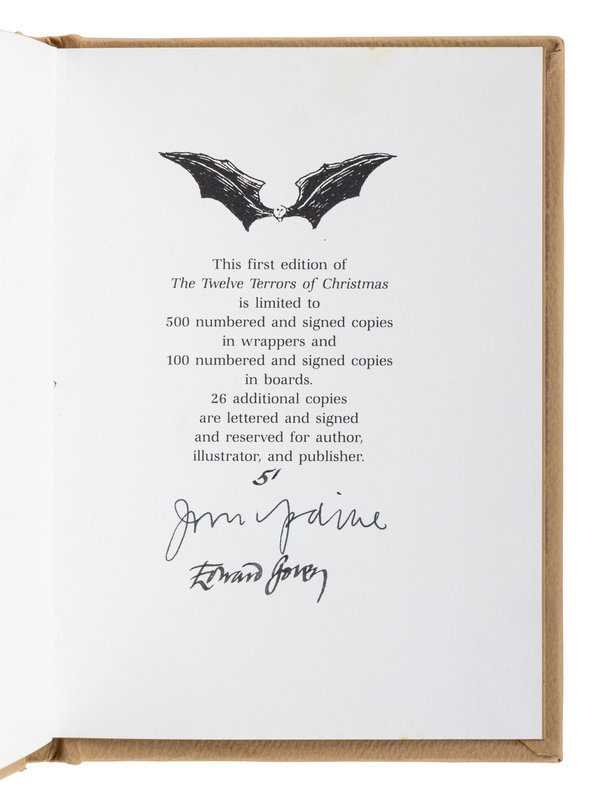 This first edition of
The Twelve Terrors of Christmas
is limited to
500 numbered and signed copies
in wrappers and
100 numbered and signed copies
in boards.
26 additional copies
are lettered and signed
and reserved for author,
illustrator, and publisher.
51
John Updike
Edward Gorey